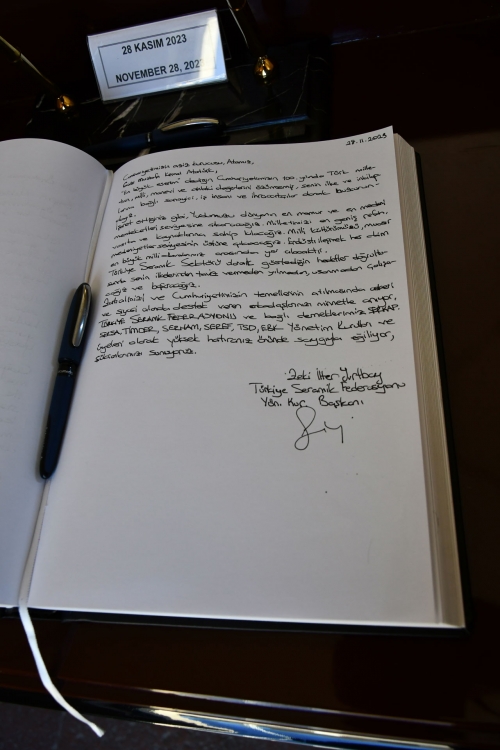 28 KASIM 2023
NOVEMBER 28, 202
28.11.2023
Cumhuriyetimizin eşsiz kurucusu, Atamız,
Gazi Mustafa Kemal Atatürk,
"En büyük eserim" dediğin Cumhuriyetimizin 100. yılında Türk mille-
tinin, milli, manevi ve ahlaki değerlerini özümsemiş, senin ilke ve inkılap-
larına bağlı sanayici, iş insanı ve ihracatçılar olarak huzurun-
dayız.
İşaret ettiğiniz gibi, Yurdumuzu dünyanın en mamur ve en medeni
memleketleri seviyesine çıkaracağız. Milletimizi en geniş refah,
vasıta ve kaynaklarına sahip kılacağız. Milli kültürümüzü, muasır
medeniyetler seviyesinin üstüne çıkaracağız. Endüstrileşmek
en büyük milli davalarımız arasında yer alacaktır.
Türkiye Seramik Sektörü olarak gösterdiğin hedefler doğrultu-
sunda senin ilkelerinden taviz vermeden yılmadan, usanmadan çalışa-
cağız ve başaracağız.
ve Cumhuriyetimizin temellerinin atılmasında askeri
ve siyasi olarak destek veren minnetle anıyor,
TÜRKİYE SERAMİK FEDERASYONU ve bağlı derneklerimiz SERKAP,
SERSA, TİMDER, SERHAM, SEREF, TSD, Yönetim Kurulları ve
üyeleri olarak yüksek hatıranız önünde saygıyla eğiliyor,
şükranlarımızı sunuyoruz.
Zeki İlter Yurtbay
Türkiye Seramik Federasyonu
Yön. Kur. Başkanı